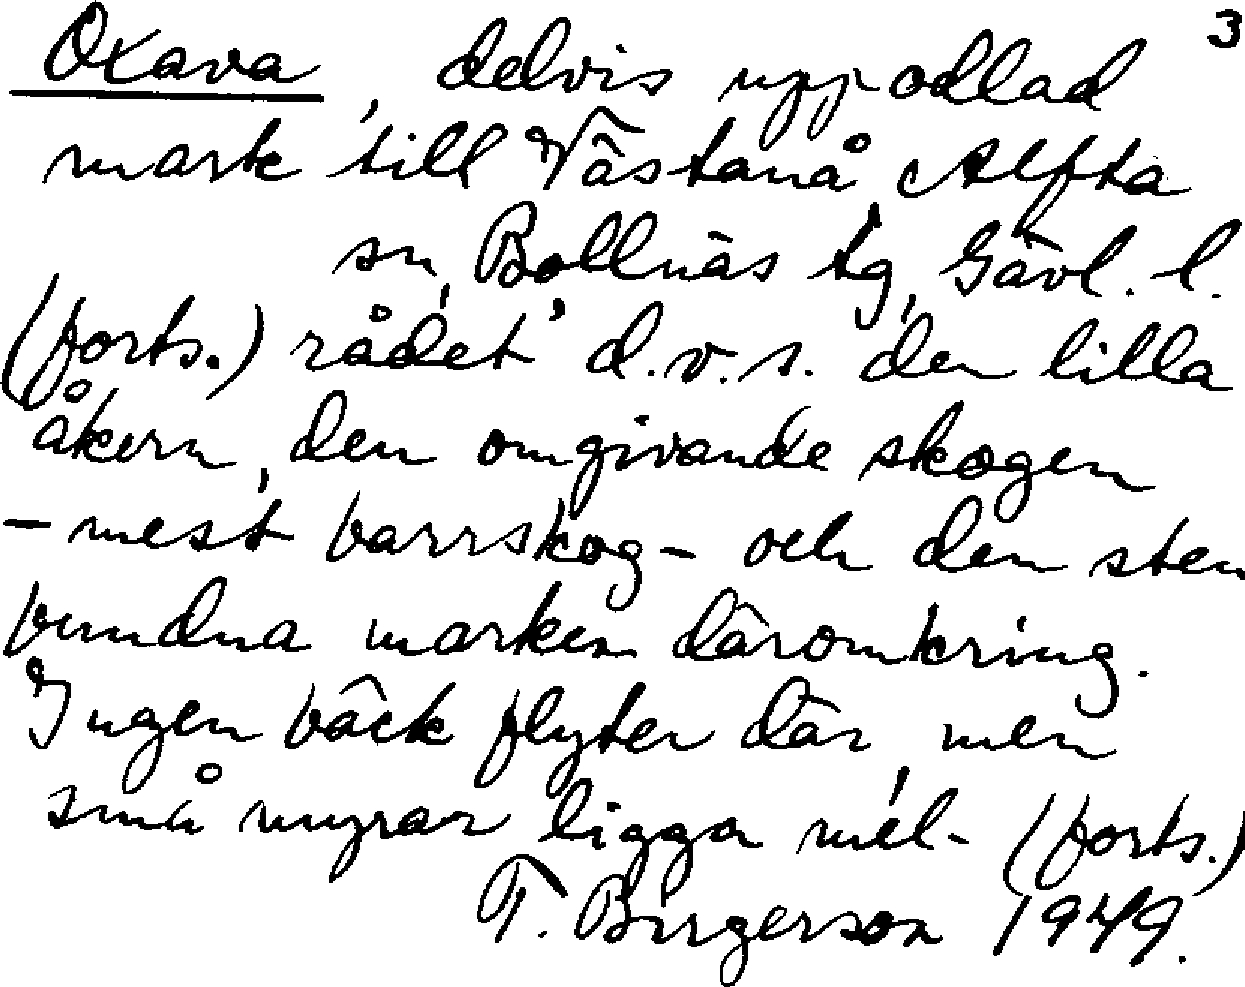 3
Oxava, delvis uppodlad
mark till Västanå, Alfta
sn, Bollnäs tg, Gävl. l.
(forts.) rådet, d.v.s. den lilla
åkern, den omgivande skogen
- mest barrskog - och den sten
bundna marken däromkring.
Ingen bäck flyter där, men
små myrar ligga mel- (forts.)
T. Birgerson 1949.